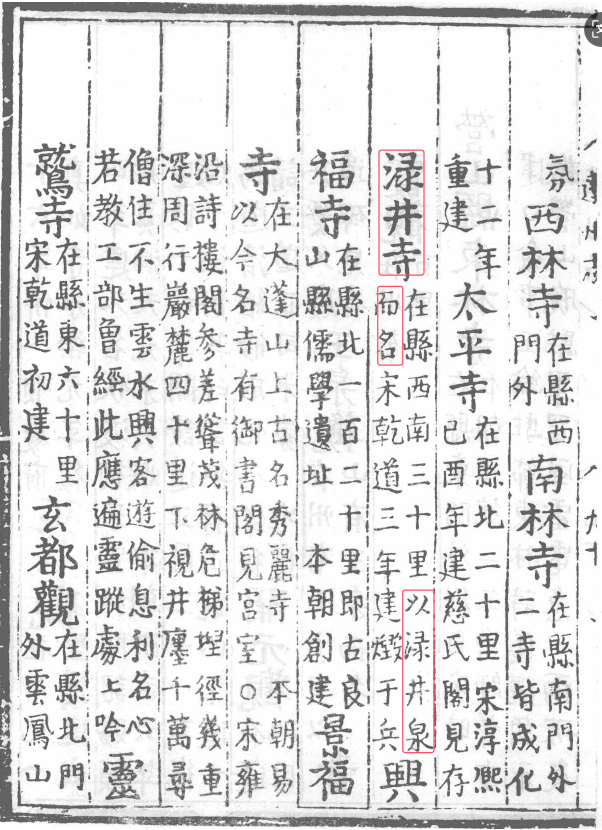 芬西林寺在縣西門外南林寺在縣南門外二寺皆成化
十二年重建太平寺在縣北二十里宋淳熙己酉年建慈氏閣見存
渌井寺在縣西南三十里以渌井泉而名宋乾道三年建燬于兵興
福寺在縣北一百二十里即古良山縣儒學遺址 本朝創建景福
寺在大蓬山上古名秀麗寺 本朝易以今名寺有御書閣見宮室○宋雍
沿詩樓閣參差聳茂林危梯徑幾重深周行巖麓四十里下視井廛千萬尋
僧住不生雲水興客遊偷息利名心若教工部曾經此應遍靈蹤處上吟靈
鷲寺在縣東六十里宋乾道初建玄都觀在縣北門外雲鳳山